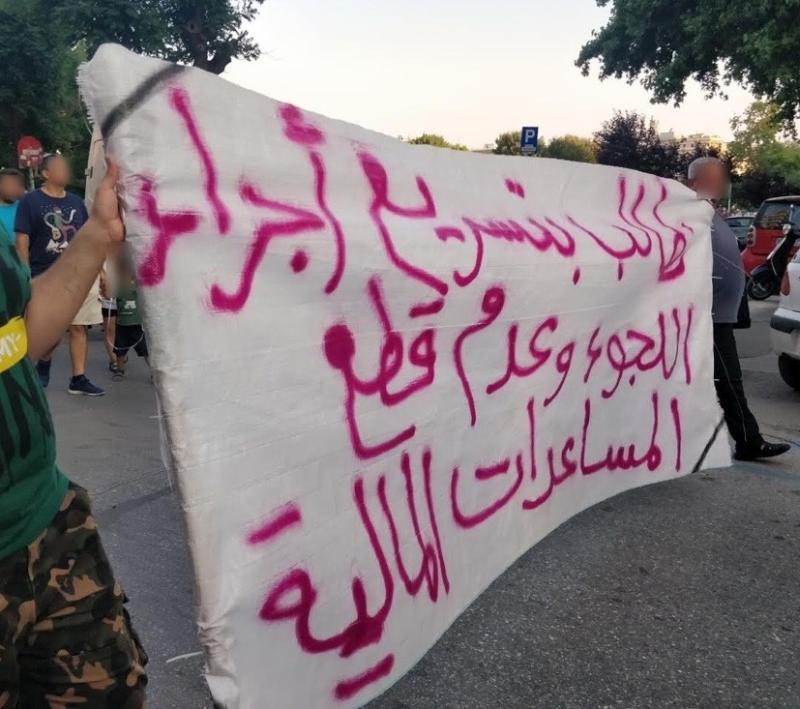 نطالب بتسريع أجراء
اللجوء وعدم قطع
المساعدات المالية
P